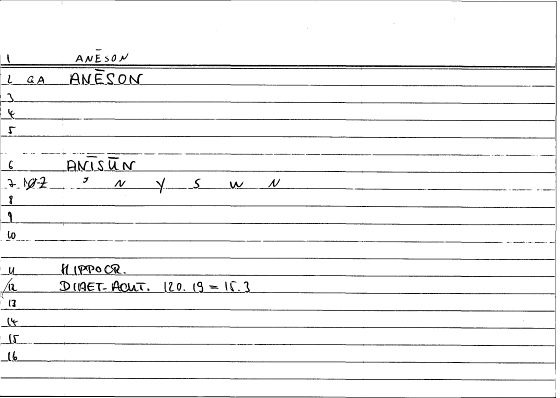 1 ANĒSON
2 GA ANĒSON
3
4
5
6 ANĪSŪN
7 NØZ ʾ N Y S W N
8
9
10
11 HIPPOCR.
12 DIAET. ACUT. 120.19 = 15.3
13
14
15
16